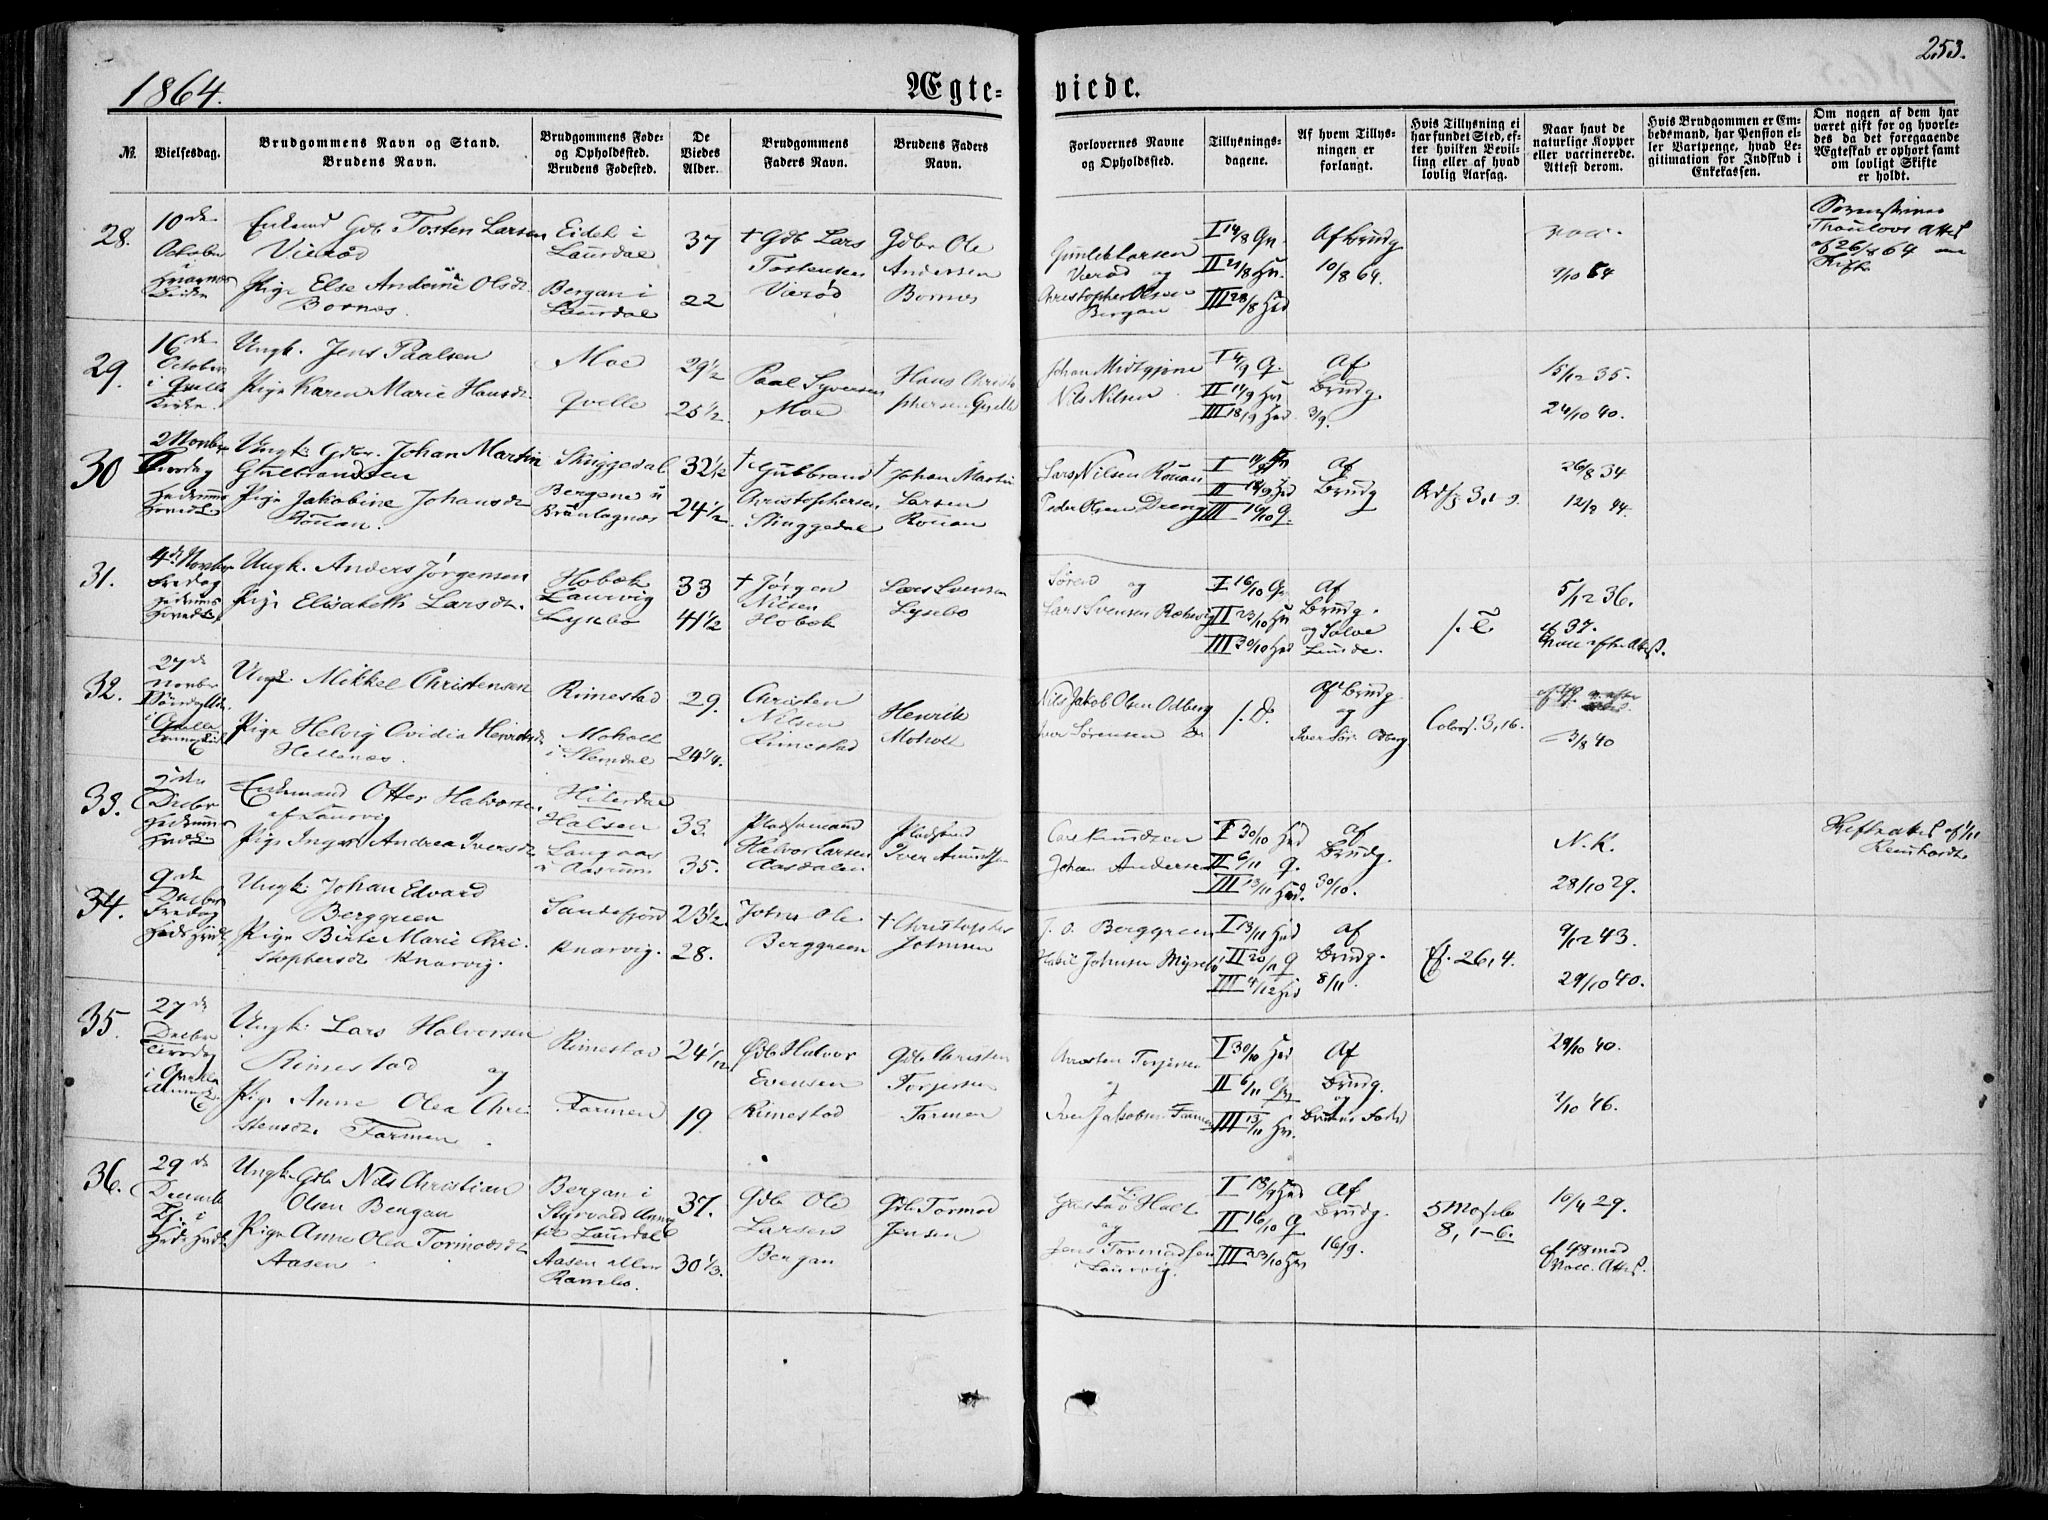 1864.
Ægte-
viede.
253.
No.
Vielsesdag.
Brudgommens Navn og Stand.
Brudens Navn.
Brudgommens Føde-
og Opholdssted.
Brudens Fødested.
De
Viedes
Alder.
Brudgommens
Faders Navn.
Brudens Faders
Navn.
Forlovernes Navne
og Opholdssted.
Tillysnings-
dagene.
Af hvem Tillys-
ningen er
forlangt.
Hvis Tillysning ei
har fundet Sted, ef-
ter hvilken Bevil-
ling eller af hvad
lovlig Aarsag.
Naar havt de
naturlige Kopper
eller vaccinerede.
Attest derom.
Hvis Brudgommen er Em-
bedsmand, har Pension el-
ler Vartpenge, hvad Le-
gitimation for Indskud i
Enkekassen.
Om nogen af dem har
været gift før og hvorle-
des da det foregaaende
Ægteskab er ophørt samt
om lovligt Skifte
er holdt.
28.
10de
October
Kirken
Enkemd Gdb. Tosten Larsen
Vierød
Pige Else Andrine Olsdt.
Bornes.
Eidet i
Laurdal
Bergan i
Laurdal
37
22
† Gdb Lars
Tostensen
Vierød
Gdbr Ole
Andersen
Bornes
Gunleik Larsen
Vierød og
Christopher Olsen
Bergan
I 14/8 Qv.
II 21/8 Hv.
III 28/8 Hed
Af Brudg
10/8 64.
vacc.
1/10 64
Attest
af 26/8 64 om
Skifte
29.
16de
October
i Qvelle
Kirke.
Ungk. Jens Paalsen
Pige Karen Marie Hansdt.
Moe
Qvelle
29 1/2
25 1/2
Paal Syversen
Moe
Hans Christo
phersen Qvelle
Johan Midtgjøne
Nils Nilsen
I 4/9 Q.
II 11/9 Hv.
III 18/9 Hed
Af
Brudg.
3/9.
15/12 35.
24/10 40.
30
2 Novbr
Hovedk
Ungk. Gdbr. Johan Martin
Gulbrandsen
Pige Jakobine Johansdt
Rouan.
Skiggedal
Bergene i
Brunlagnæs
32 1/2
24 1/2
† Gulbrand
Christophersen
Skiggedal
† Johan Martin
Larsen
Rouan
Lars Nilsen Rouan
Peder Olsen Dreng
I 11/9 Hv
II 18/9 Hed
III 16/10 Q.
Af
Brudg
26/8 34
12/8 44.
31.
4de Novbr
Fredag
Hovedk.
Ungk. Anders Jørgensen
Pige Elisabeth Larsdt.
Hobæk
Laurvig
Lysebo
33
41 1/2
† Jørgen
Nilsen
Hobæk
Lars Svensen
Lysebo
og
Lars Svensen
I 16/10 Q.
II 23/10 Hv
III 30/10 Hed
Af
Brudg.
og Solve
Lunde.
5/12 36.
af 37.
32.
27de
Novbr
i Qvelle
Ungk. Mikkel Christensen
Pige Helvig Ovidia Henriksdt
Hellenæs.
Rimestad
Moholt
i Slemdal
29.
24 1/4.
Christen
Nilsen
Rimestad
Henrik
Moholt
Nils Jakob Olsen Odberg
Iver Sørensen Do
Af Brudg.
og
Iver Sør. Odberg
Coloss. 3, 16.
3/8 40
33.
2den
Decbr
Enkemand Otter Halvorsen
af Laurvig
Pige Inger Andrea Iversdt
Hiterdal
Halsen
Langaas
i Aasrum
33.
35.
Pladsemand
Halvor Larsen
Aasdalen
Pladsmd
Iver Amundsen
Knudsen
Johan Andersen
I 30/10 Hed
II 6/11 Q.
III 13/11 Hed.
Af
Brudg.
30/10.
N. K.
28/10 29.
Skifteattest af 1/11
34.
9de
Decbr
Fredag
Ungk. Johan Edvard
Berggreen
Pige Birte Marie Chri-
stophersdt Knarvig.
Sandefjord
Knarvig.
23 1/2.
28.
Johns Ole
Berggreen
† Christopher
Johnsen
J. O. Berggreen
Johnsen
I 13/11 Hed
II 20/11 Q
III 4/12 Hed
Af
Brudg.
8/11
Es. 26, 4.
9/12 43.
29/10 40.
35.
27de
Decbr
Tirsdag
i Qvelle
Ungk. Lars Halvorsen
Rimestad og
Pige Anne Olea Chri-
stensdt. Farmen.
Rimestad
Farmen
24 1/12
19.
Gdb Halvor
Evensen
Rimestad
Gdb Christen
Torjersen
Farmen
Christen Torjersen
og
Iver Jakobsen Farmen
I 30/10 Hed
II 6/11 Q.
III 13/11 Hv.
Af
Brudg.
og
Brudens Fader
29/10 40.
2/10 46.
36.
29de
Decembr
Ungk. Gdb Nils Christian
Olsen Bergan
Pige Anne Olea Tormodsdt
Aasen.
Bergan i
Styrvold Annex
til Laurdal
Aasen eller
Rambo.
37.
30 1/3.
Gdb Ole
Larsen
Bergan
Gdb Tormod
Jensen
Gustav Holt
og
Jens Tormodsen
i Laurvig.
I 18/9 Hed
II 16/10 Q
III 23/10 Hv
Af
Brudg.
16/9.
5 Moseb
8, 1-6.
10/4 29.
af 48 med
Vacc. Attest.